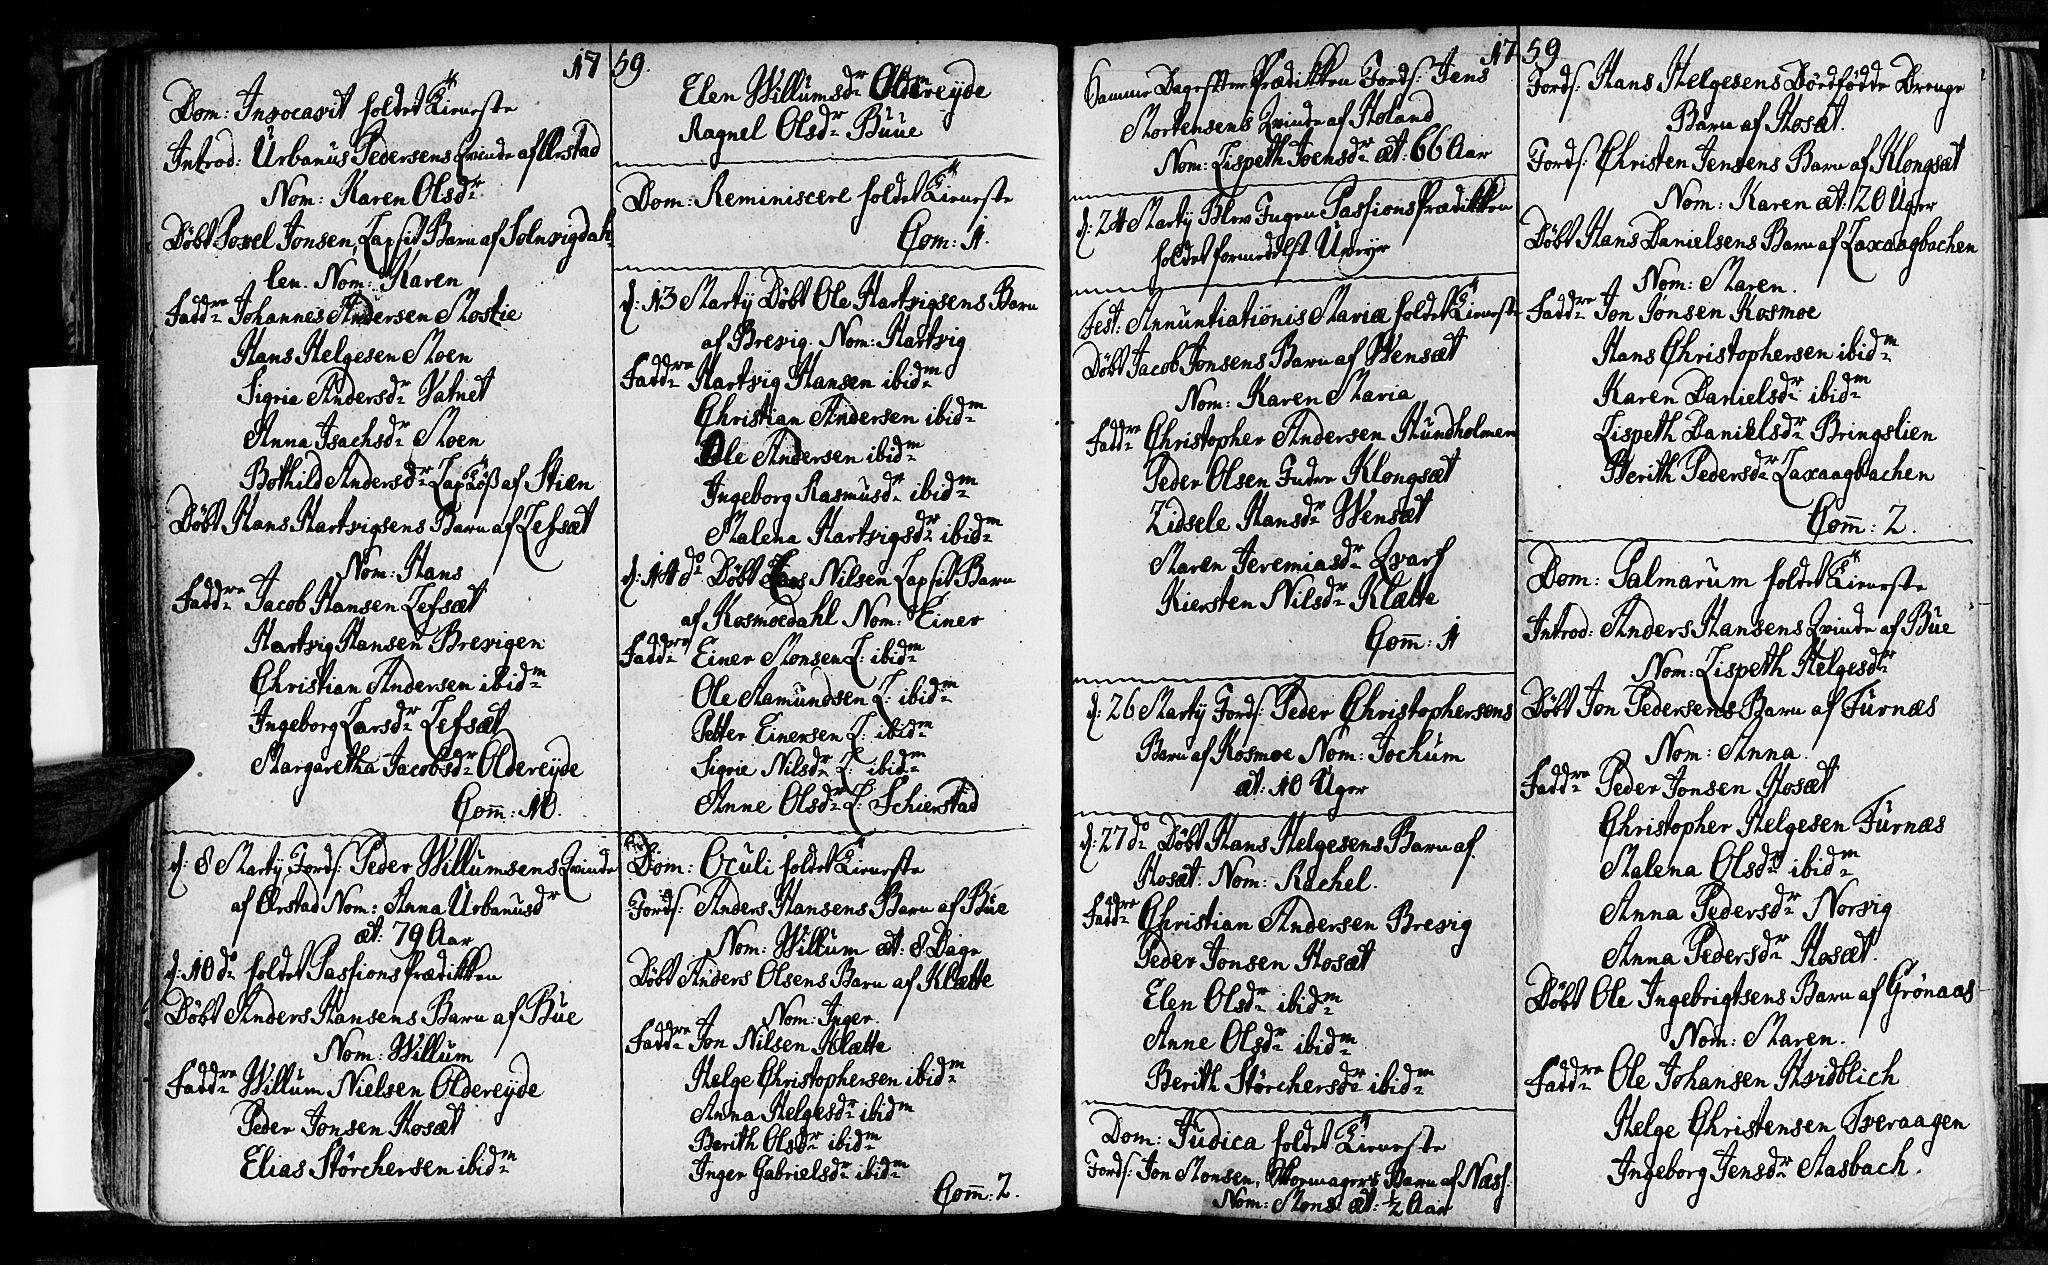 1759.
Dom: Invocavit holdet Tieneste
Introd: Urbanus Pedersens Qvinde af Ørstad
Nom: Karen Olsdr
Døbt Povel Jonsen, Lapsit Barn af Solvvigdah-
len. Nom: Karen
Faddre Johannes Andersen Mostie
Hans Helgesen Moen
Sigrie Andersdr Vatnet
Anna Isachsdr Moen
Bothild Andersdr Lap Töß af Stien
Døbt Hans Hartvigsens Barn af Lefsæt
Nom: Hans
Faddre Jacob Hansen Lefsæt
Hartvig Hansen Brevigen
Christian Andersen ibidm
Ingeborg Larsdr Lefsæt
Margaretha Jacobsdr Oldereyde
Com: 10.
d: 8 Marty Fords: Peder Willumsens Qvinde
af Ørstad Nom: Anna Urbanusdr
æt: 79 Aar
d: 10 do holdet Passions Prædikken
Døbt Anders Hansens Barn af Bue
Nom: Willum
Faddre Willum Nielsen Oldereyde
Peder Jonsen Hosæt
Elias Störchersen ibidm
Elen Willumsdr Oldereyde
Ragnel Olsdr Buue
Dom: Reminiscere holdet Tieneste
Com: 1.
d: 13 Marty Døbt Ole Hartvigsens Barn
af Brevig. Nom: Hartvig
Faddre Hartvig Hansen ibidm
Christian Andersen ibidm
Ole Andersen ibidm
Ingeborg Rasmusdr ibidm
Malena Hartvigsdr ibidm
d: 14 do Døbt Lars Nilsen Lapsit Barn
af Kosmoedahl Nom: Einer
Faddre Einer Monsen L: ibidm
Ole Aamundsen L: ibidm
Petter Einersen L: ibidm
Sigrie Nilsdr L: ibidm
Anne Olsdr L: Schierstad
Dom: Oculi holdet Tieneste
Fords: Anders Hansens Barn af Bue
Nom: Willum æt: 8 Dage
Døbt Anders Olsens Barn af Klætte
Nom: Inger.
Faddre Jon Nilsen Klætte
Helge Christophersen ibidm
Anna Helgesdr ibidm
Berith Olsdr ibidm
Inger Gabrielsdr ibidm
Com: 2.
1759
Samme Dag efter Prædikken Fords: Jens
Mortensens Qvinde af Høland
Nom: Lispeth Joensdr æt: 66 Aar
d: 24 Marty Blev Ingen Passions Prædikken
holdet formedelst Uveyr
Fest: Annuntiationis Mariæ holdet Tieneste
Døbt Jacob Jonsens Barn af Wensæt
Nom: Karen Maria
Faddre Christopher Andersen Hundholmen
Peder Olsen Indre Klongsæt
Zidsele Hansdr Wensæt
Maren Jeremiasdr Qvarf
Kiersten Nilsdr Klætte
Com: 1
d: 26 Marty Fords: Peder Christophersens
Barn af Kosmoe Nom: Jochum
æt: 10 Uger
d: 27 do Døbt Hans Helgesens Barn af
Hosæt. Nom: Rachel.
Faddre Christian Andersen Brevig
Peder Jonsen Hosæt
Elen Olsdr ibidm
Anne Olsdr ibidm
Berith Störchersdr ibidm
Dom: Judica holdet Tieneste
Fords: Jon Monsen, Skomagers Barn af Næs.
Nom: Mons æt: ½ Aar
Fords: Hans Helgesens Dødfødde Drenge
Barn af Hosæt.
Fords: Christen Jensens Barn af Klongsæt
Nom: Karen æt: 20 Uger
Døbt Hans Danielsens Barn af Laxaagbachen
Nom: Maren.
Faddre Jon Jonsen Kosmoe
Hans Christophersen ibidm
Karen Danielsdr ibidm
Lispeth Danielsdr Bringslien
Berith Pedersdr Laxaagbachen
Com: 2.
Dom: Palmarum holdet Tieneste
Introd: Anders Hansens Qvinde af Bue
Nom: Lispeth Helgesdr
Døbt Jon Pedersens Barn af Furnæs
Nom: Anna.
Faddre Peder Jonsen Hosæt
Christopher Helgesen Furnæs
Malena Olsdr ibidm
Anna Pedersdr Norvig
Anna Pedersdr Hosæt.
Døbt Ole Ingebrigtsens Barn af Grønaas
Nom: Maren.
Faddre Ole Johansen Hvidblich
Helge Christensen Tveraagen
Ingeborg Jensdr Aasbach.